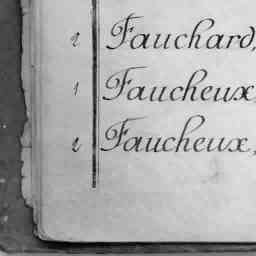 2 Fauchard,
1 Faucheux,
2 Faucheux,